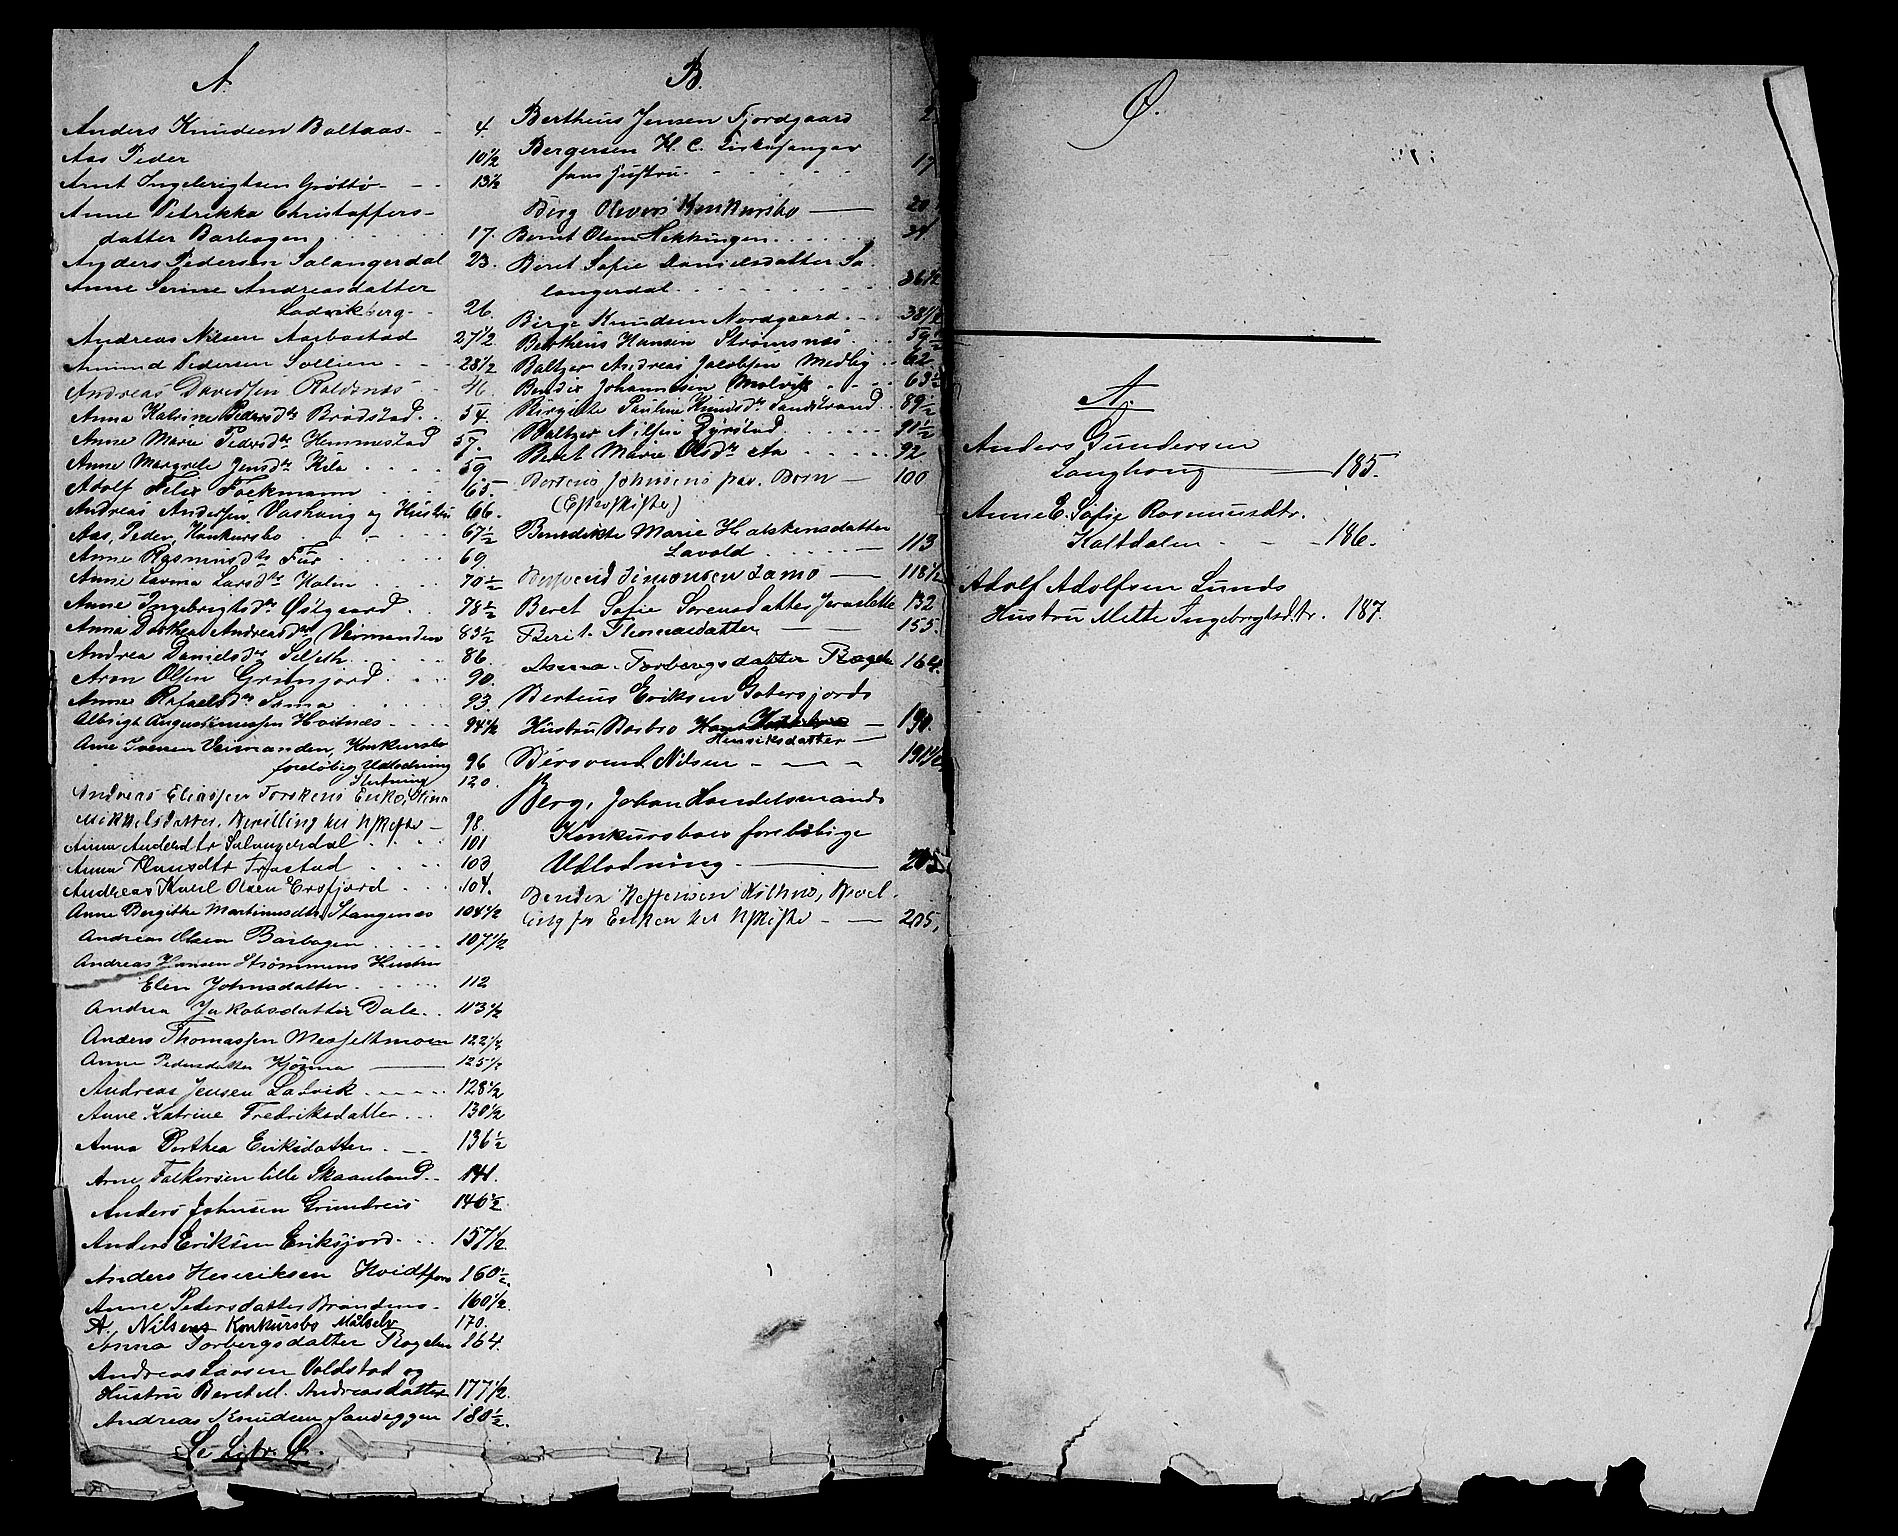 A.
Anders Knudsen Baltaas - 4.
Aas Peder 10 1/2
Arnt Ingebrigtsen Grøttø - - - 13 1/2
Anne Petrikka Christoffers-
datter Barbogen 17.
Anders Pedersen Salangerdal 23.
Anne Serine Andreasdatter
Ladvikberg - 26.
Andreas Nilsen Aarbostad 27 1/2
Amund Pedersen Sollien - - - 28 1/2
Andreas Davidsen Roldsnæs 41.
Anna Katrine Pedersdtr Brødstad 54.
Anne Marie Pedersdtr Hemmestad 57.
Anne Margrete Jensdtr Kila 59
Adolf Felix Fockmann 65.
Andreas Andersen Vashaug og Hustru 66.
Aas, Peder, Konkursbo 67 1/2
Anne Rasmusdtr Fur 69
Anne Lovina Larsdtr Kalen 70 1/2
Anne Ingebrigtsdtr Øslgaard 78 1/2
Anna Dorthea Andreasdtr Vermunden 83 1/2
Andrea Danielsdtr Selseth 86.
Aron Olsen Grunfjord 90.
Anne Rafaelsdtr Sama 93.
Albrigt Augustinussen Hvitnæs 94 1/2
Arne Iversen Veimanden, Konkursbo
foreløbig Udlodning 96
Slutning 120.
Andreas Eliassen Torskens Enke, Stina
Mikkelsdatter, Bevilling til Uskifte - 98.
Anna Andersdtr Salangerdal 101
Anna Hansdtr Trastad 103
Andreas Karl Olsen Ersfjord 104.
Anne Bergithe Martinusdtr Stangenæs 104 1/2
Andreas Olsen Barbogen 107 1/2
Andreas Hansen Strømmens Hustru
Elen Johnsdatter 112
Andrea Jakobsdatter Dale 113 1/2
Anders Thomassen Messeltmoen 122 1/2
Anne Pedersdatter Kjønna 125 1/2
Andreas Jensen Ladvik 128 1/2
Anne Katrine Fredriksdatter 130 1/2
Anna Dorthea Eriksdatter 136 1/2
Arne Falkorsen lille Skaanland 141.
Anders Johnsen Grundreis 146 1/2
Anders Eriksen Eriksjord 157 1/2
Anders Henriksen Kvidtfors 160 1/2
Anne Pedersdatter Brandmo 160 1/2
A. Nilsens Konkursbo Målselv 170.
Anna Torbergsdatter Rogeln 164.
Andreas Larsen Voldstad og
Hustru Beret M. Andreasdatter 177 1/2
Andreas Knudsen Sandeggen 180 1/2
Se Litr. Ø.
B.
Bertheus Jensen Fjordgaard 2
Bergersen H. C. Finkefjanger
hans Hustru 17
Berg Olivers Konkursbo 20
Bernt Olsen Hekkingen 34
Beret Sofie Danielsdatter Sa-
langerdal 36 1/2
Birge Knudsen Nordgaard 38 1/2
Bertheus Hansen Strømsnæs 59 1/2
Baltzer Andreas Jacobsen Medby 62
Bendix Johannesen Molvik 63 1/2
Birgitte Pauline Knudsdtr Sandstrand 89 1/2
Baltzer Nilsen Dyrstad 91 1/2
Beret Marie Olsdtr Aa 92
Bertens Johnsens fav. Born 100
(Efterskifte)
Benedikte Marie Halskensdatter
Lavold 113
Simonsen Lamo 118 1/2
Beret Sofie Sørensdatter Jernslette 132
Berit Thomasdatter 155.
Anna Torbergsdatter Rogeln 164.
Berteus Eriksen Gotersjords
Hustru Barbro
Henriksdatter - 190.
Bersvend Nilsen 191 1/2
Berg, Johan Handelsmands
Konkursboes foreløbige
Udlodning 205
Bendix Jessensen Køthnæs, Bevil-
ling for Enken til Uskifte 205,
Ø.
A.
Anders Gundersen
Langhaug 185.
Anne E. Sofie Rasmusdtr.
Kaltdalen 186.
Adolf Adolfsen Lunds
Hustru Mette Ingebrigtsdtr. 187.